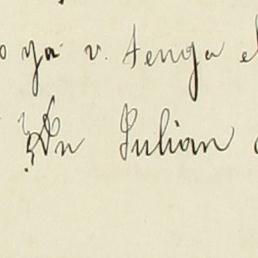 ya v. tenga
Dn Julian